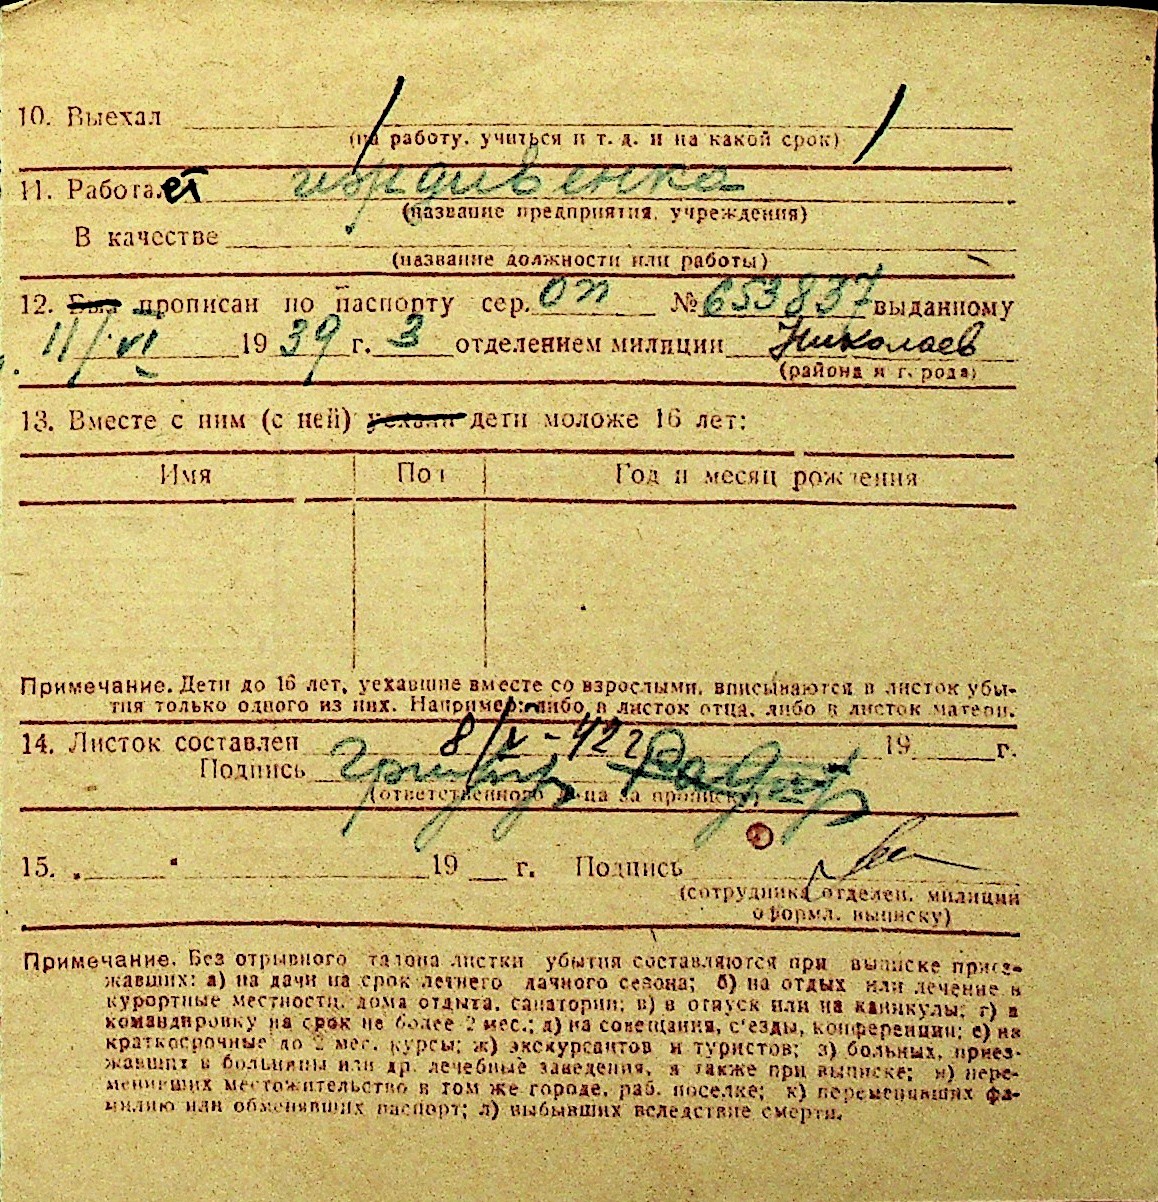 10. Выехал
(на работу, учиться и т. д. и на какой срок)
11. Работает иждивенка
(название предприятия, учреждения)
В качестве
(название должности или работы)
12. Был прописан по паспорту сер. ОП № 653837 выданному
11/VI 1939 г. 3 отделением милиции Николаев
(района и города)
13. Вместе с ним (с ней) уехали дети моложе 16 лет:
Имя Пол Год и месяц рождения
Примечание. Дети до 16 лет, уехавшие вместе со взрослыми, вписываются в листок убы-
тия только одного из них. Например: либо в листок отца, либо в листок матери.
14. Листок составлен 8/V-42 г 19 г.
Подпись
(ответственного лица за прописку)
15. „ " 19 г. Подпись
(сотрудника отделен. милиции
оформл. выписку)
Примечание. Без отрывного талона листки убытия составляются при выписке приез-
жавших: а) на дачи на срок летнего дачного сезона; б) на отдых или лечение в
курортные местности, дома отдыха, санатории; в) в отпуск или на каникулы; г) в
командировку на срок не более 2 мес.; д) на совещания, с'езды, конференции; е) на
краткосрочные до 2 мес. курсы; ж) экскурсантов и туристов; з) больных, приез-
жавших в больницы или др. лечебные заведения, а также при выписке; и) пере-
менивших местожительство в том же городе, раб. поселке; к) переменивших фа-
милию или обменявших паспорт; л) выбывших вследствие смерти.